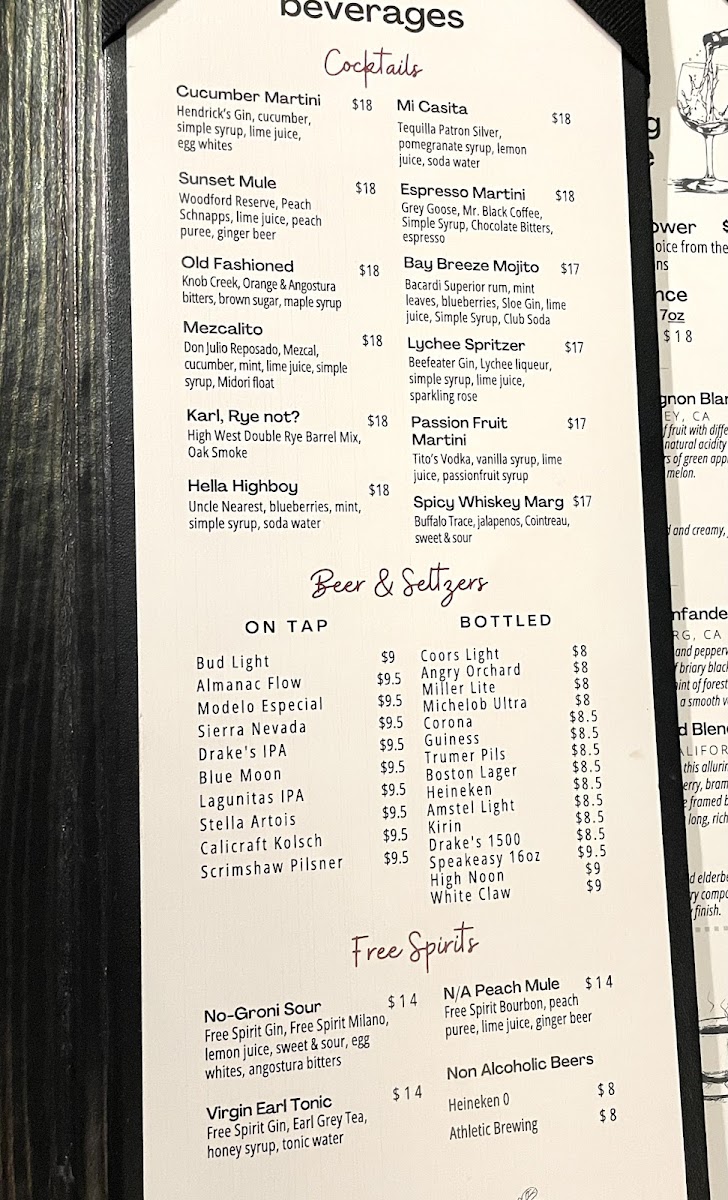 beverages
Cocktails
Cucumber Martini $18
Hendrick's Gin, cucumber,
simple syrup, lime juice,
egg whites
Sunset Mule $18
Woodford Reserve, Peach
Schnapps, lime juice, peach
puree, ginger beer
Old Fashioned $18
Knob Creek, Orange & Angostura
bitters, brown sugar, maple syrup
Mezcalito $18
Don Julio Reposado, Mezcal,
cucumber, mint, lime juice, simple
syrup, Midori float
Karl, Rye not? $18
High West Double Rye Barrel Mix,
Oak Smoke
Hella Highboy $18
Uncle Nearest, blueberries, mint,
simple syrup, soda water
Mi Casita $18
Tequilla Patron Silver,
pomegranate syrup, lemon
juice, soda water
Espresso Martini $18
Grey Goose, Mr. Black Coffee,
Simple Syrup, Chocolate Bitters,
espresso
Bay Breeze Mojito $17
Bacardi Superior rum, mint
leaves, blueberries, Sloe Gin, lime
juice, Simple Syrup, Club Soda
Lychee Spritzer $17
Beefeater Gin, Lychee liqueur,
simple syrup, lime juice,
sparkling rose
Passion Fruit $17
Martini
Tito's Vodka, vanilla syrup, lime
juice, passionfruit syrup
Spicy Whiskey Marg $17
Buffalo Trace, jalapenos, Cointreau,
sweet & sour
Beer & Seltzers
ON TAP
Bud Light $9
Almanac Flow $9.5
Modelo Especial $9.5
Sierra Nevada $9.5
Drake's IPA $9.5
Blue Moon $9.5
Lagunitas IPA $9.5
Stella Artois $9.5
Calicraft Kolsch $9.5
Scrimshaw Pilsner $9.5
BOTTLED
Coors Light $8
Angry Orchard $8
Miller Lite $8
Michelob Ultra $8
Corona $8.5
Guiness $8.5
Trumer Pils $8.5
Boston Lager $8.5
Heineken $8.5
Amstel Light $8.5
Kirin $8.5
Drake's 1500 $8.5
Speakeasy 16oz $9.5
High Noon $9
White Claw $9
Free Spirits
No-Groni Sour $14
Free Spirit Gin, Free Spirit Milano,
lemon juice, sweet & sour, egg
whites, angostura bitters
Virgin Earl Tonic $14
Free Spirit Gin, Earl Grey Tea,
honey syrup, tonic water
N/A Peach Mule $14
Free Spirit Bourbon, peach
puree, lime juice, ginger beer
Non Alcoholic Beers
Heineken 0 $8
Athletic Brewing $8
from the
7oz
$18
CA
fruit with
natural acidity
of green
melon.
and creamy,
CA
and
briary
of forest
a smooth
this
framed
long, rich
finish.